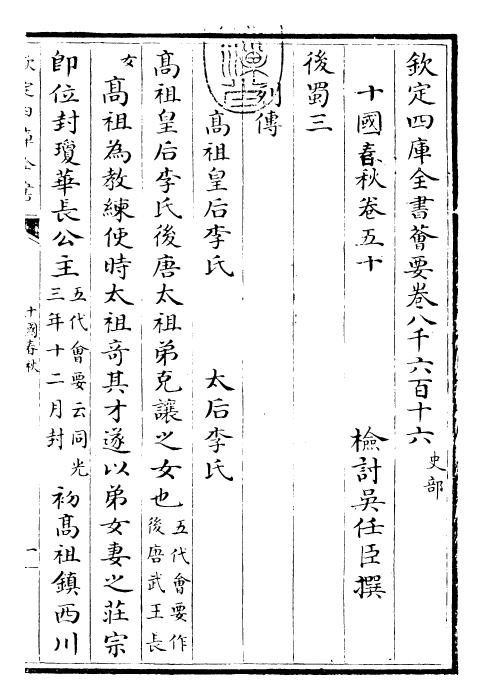 欽定四庫全書薈要卷八千六百十六 史部
十國春秋卷五十
檢討吳任臣撰
後蜀三
列傳
高祖皇后李氏 太后李氏
高祖皇后李氏後唐太祖弟克讓之女也五代會要作後唐武王長
女高祖為教練使時太祖奇其才遂以弟女妻之莊宗
卽位封瓊華長公主五代會要云同光三年十二月封初高祖鎮西川
十國春秋
一